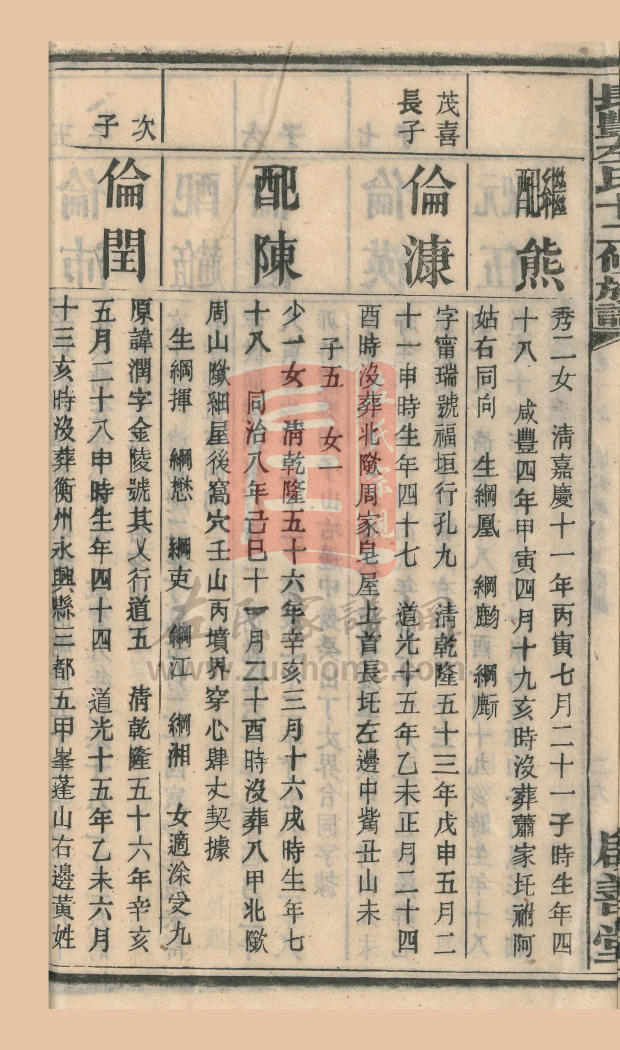 長豐左氏十二修族譜
善堂
繼配熊
秀二女 清嘉慶十一年丙寅七月二十一子時生年四
十八 咸豐四年甲寅四月十九亥時沒葬蕭家坵祔阿
姑右同向 生綱鳳 綱鹓 綱𪋺
茂喜長子
倫濂
字甯瑞號福垣行孔九 清乾隆五十三年戊申五月二
十一申時生年四十七 道光十五年乙未正月二十四
酉時沒葬北歟周家皂屋上首長坵左邊中觜丑山未
子五 女一
配陳
少一女 清乾隆五十六年辛亥三月十六戌時生年七
十八 同治八年己巳十一月二十酉時沒葬八甲北歟
周山歟細屋後窩穴壬山丙墳界穿心肆丈契據
生綱揮 綱懋 綱吏 綱江 綱湘 女適涂受九
次子
倫閏
原諱潤字金陵號其乂行道五 清乾隆五十六年辛亥
五月二十八申時生年四十四 道光十五年乙未六月
十三亥時沒葬衡州永興縣三都五甲峯蓬山右邊黃姓
www.zupuhome.com